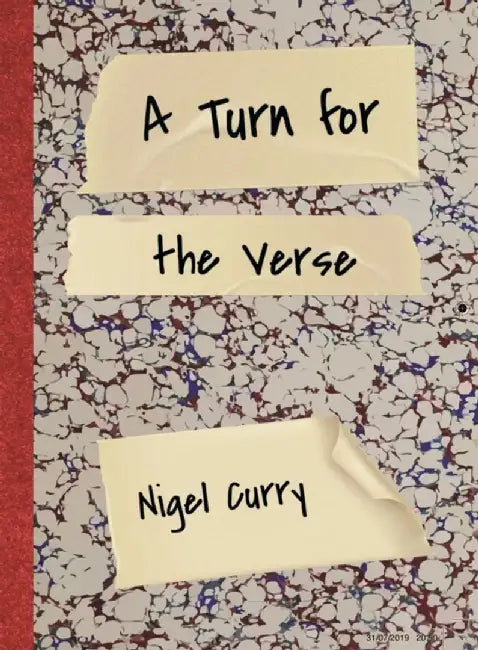 A Turn for
the Verse
Nigel Curry
31/07/2019